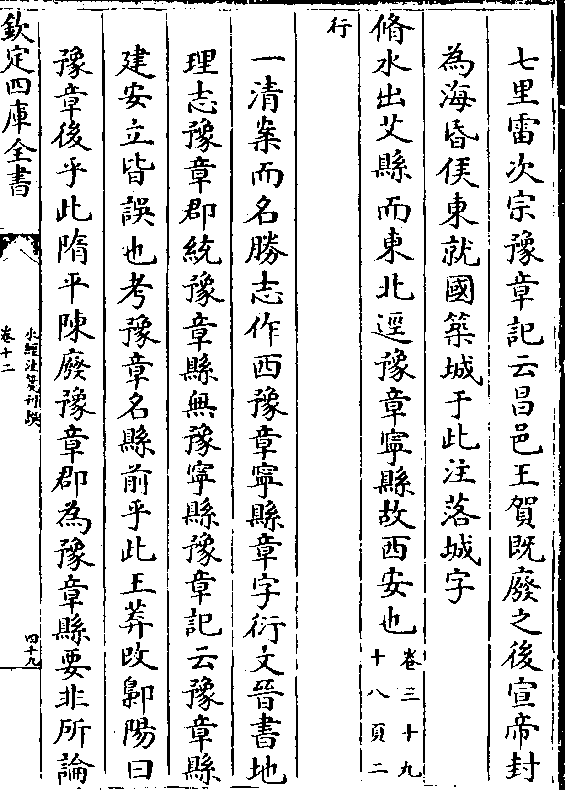 七里雷次宗豫章記云昌邑王賀既廢之後宣帝封
為海昏侯東就國築城于此注落城字
脩水出艾縣而東北逕豫章寧縣故西安也卷三十九
十八頁二
行
一清案而名勝志作西豫章寧縣章字衍文晉書地
理志豫章郡統豫章縣無豫寧縣豫章記云豫章縣
建安立皆誤也考豫章名縣前乎此王莽改鄡陽曰
豫章後乎此隋平陳廢豫章郡為豫章縣要非所論
欽定四庫全書
水經注箋刊誤
卷十二
四十九